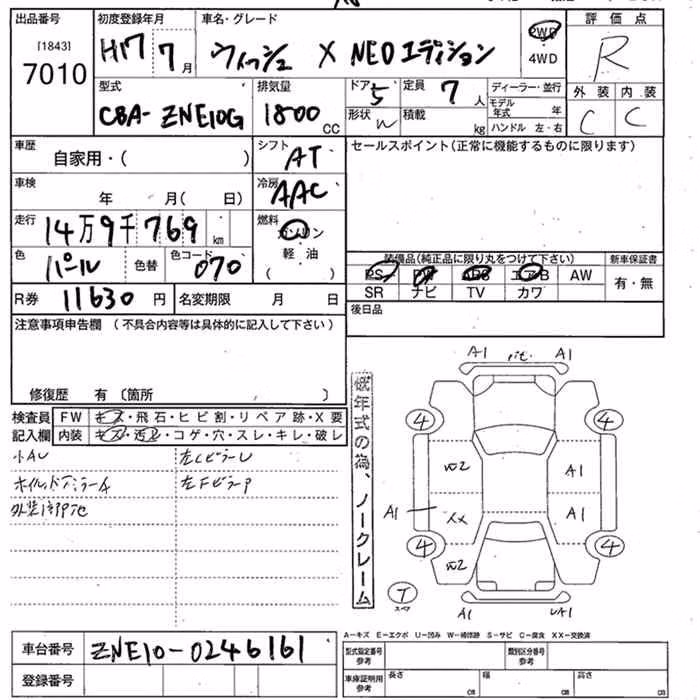 出品番号 初度登録年月 車名・グレード 評価点
[1843]
7010
H17 7月 ウィッシュ X NEOエディション 2WD 4WD R
型式 排気量 ドア 5 定員 7人 ディーラー・並行 外装 内装
CBA-ZNE10G 1800 CC 形状 W 積載 kg モデル年式 年 C C
ハンドル 左・右
車歴 シフト セールスポイント(正常に機能するものに限ります)
自家用・( ) AT
車検 冷房
年 月( 日) AAC
走行 燃料
14万9千769 km ガソリン
色 色コード 軽油
パール 色替 070 ( )
装備品(純正品に限り丸をつけて下さい) 新車保証書
PS PW ABS エアB AW 有・無
SR ナビ TV カワ
R券 11630 円 名変期限 月 日 後日品
注意事項申告欄 (不具合内容等は具体的に記入して下さい)
修復歴 有 〔箇所 〕
検査員 FW キズ・飛石・ヒビ割・リペア跡・X要
記入欄 内装 キズ・汚レ・コゲ・穴・スレ・キレ・破レ
小AU 左CピラーU
左FピラーP
低年式の為、ノークレーム
A1 A1
4 4
A1
A1 A1
XX
4 4
T
スペア
A1 UA1
A-キズ E-エクボ U-凹み W-補修跡 S-サビ C-腐食 XX-交換済
車台番号 ZNE10-0246161
登録番号
型式指定番号 参考 類別区分番号 参考
車庫証明用 参考 長さ cm 幅 cm 高さ cm